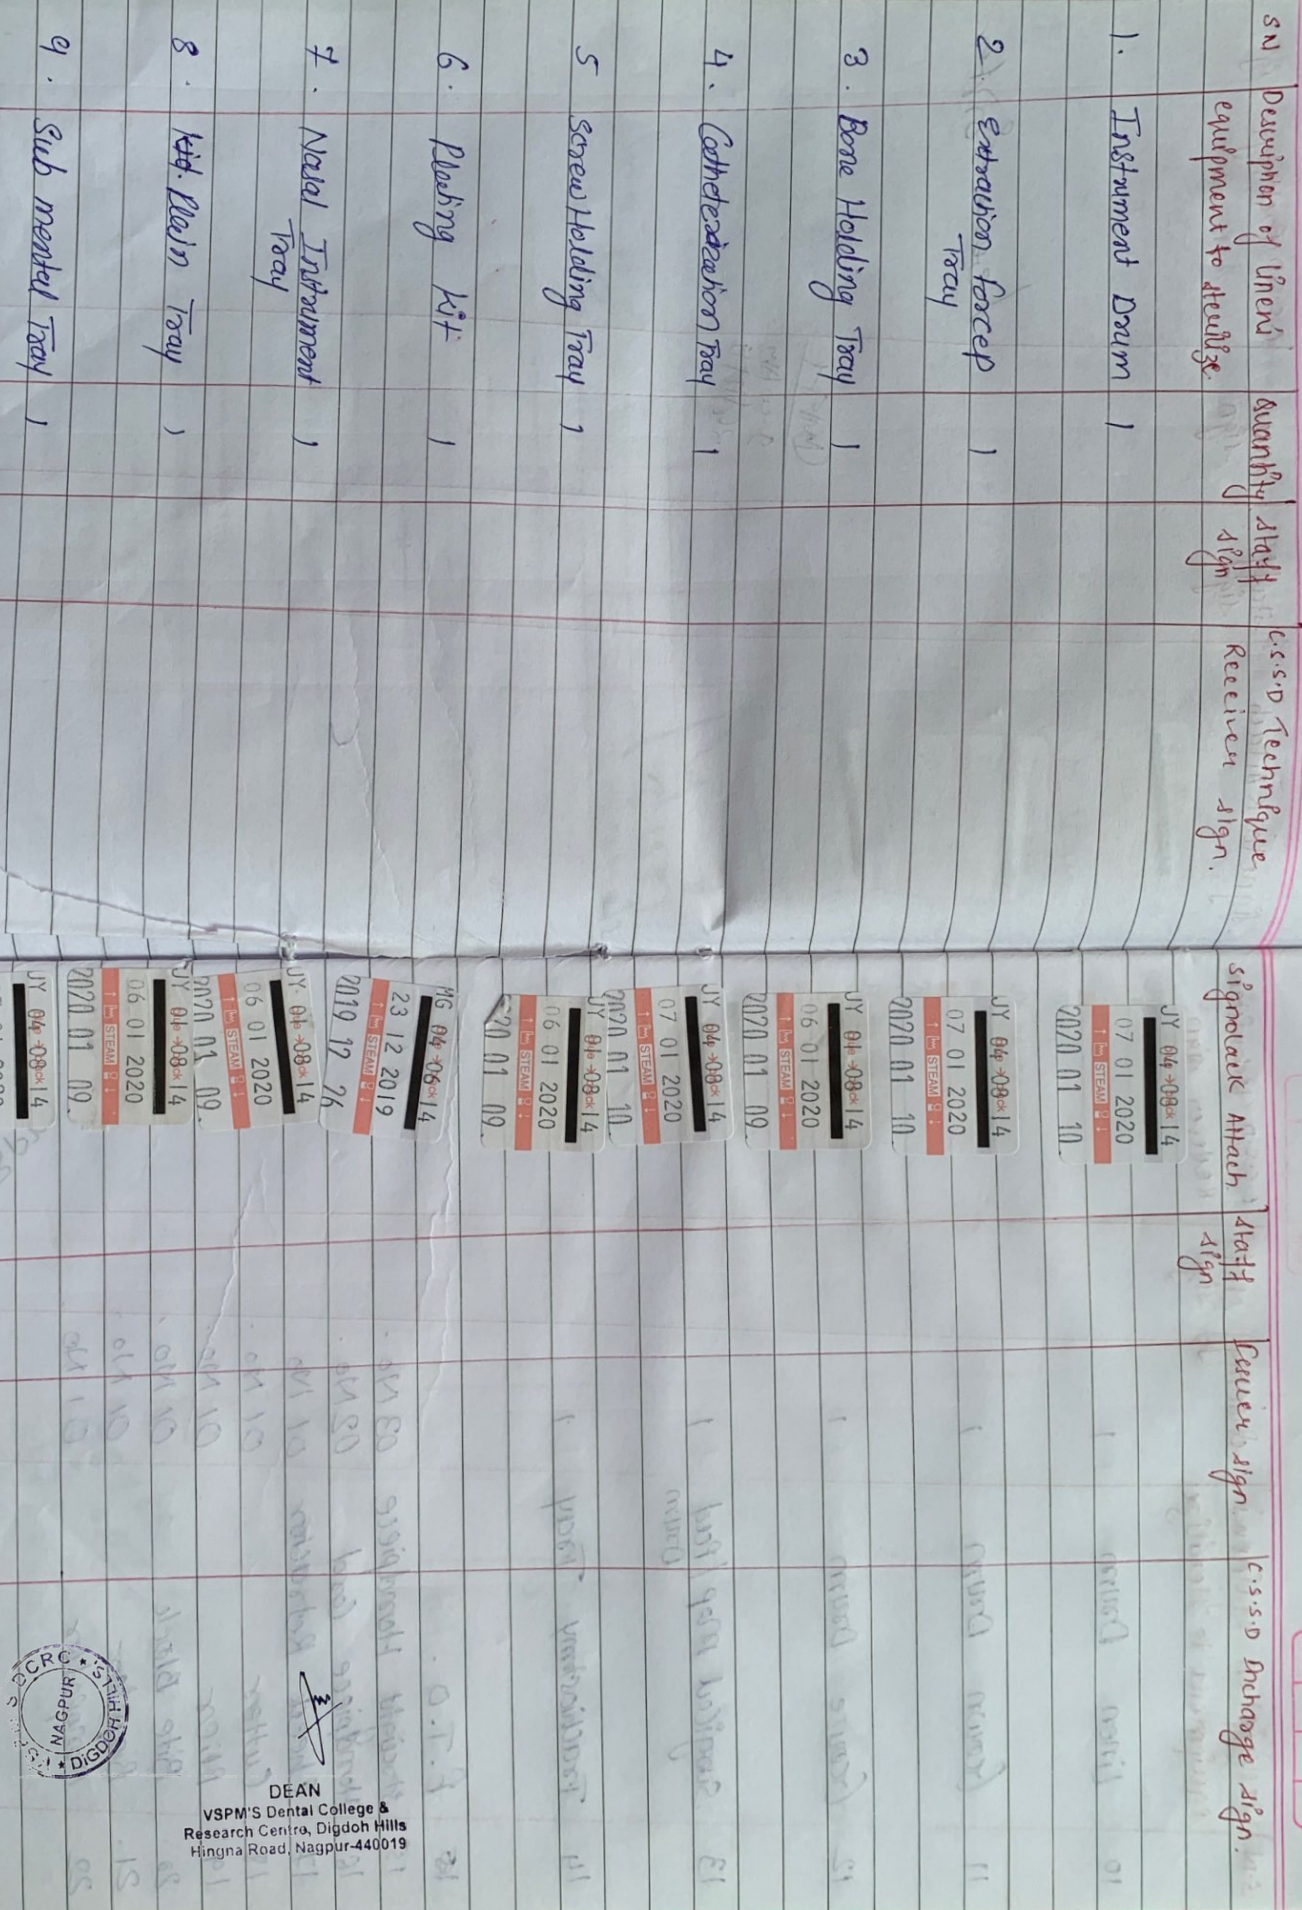 SN Description of linen/ equipment to sterilize. quantity staff sign C.S.S.D Technique Receiver sign. signolack Attach. staff sign Issuer sign C.S.S.D Incharge sign.
1. Instrument Drum 1
JY 04→08ck14
07 01 2020
↑ STEAM ↓
2020 01 10
2. Extraction forcep Tray 1
JY 04→08ck14
07 01 2020
↑ STEAM ↓
2020 01 10
3. Bone Holding Tray 1
JY 04→08ck14
06 01 2020
↑ STEAM ↓
2020 01 09
4. Catheterization Tray 1
JY 04→08ck14
07 01 2020
↑ STEAM ↓
2020 01 10
5 Screw Holding Tray 1
JY 04→08ck14
06 01 2020
↑ STEAM ↓
20 01 09
6. Plating Kit 1
MG 04→06ck14
23 12 2019
↑ STEAM ↓
2019 12 26
7. Nasal Instrument Tray 1
JY 04→08ck14
06 01 2020
↑ STEAM ↓
2020 01 09
8. Plain Tray 1
JY 04→08ck14
06 01 2020
↑ STEAM ↓
2020 01 09
9. Sub mental Tray 1
JY 04→08ck14
DCRC * DIGDOH HILLS *
NAGPUR
DEAN
VSPM'S Dental College &
Research Centre, Digdoh Hills
Hingna Road, Nagpur-440019